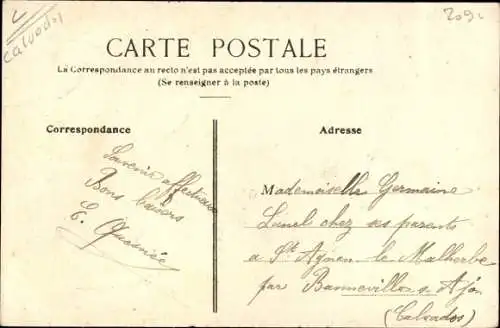 Calvados
CARTE POSTALE
La Correspondance au recto n'est pas acceptée par tous les pays étrangers
(Se renseigner à la poste)
Correspondance
Adresse
Souvenir affectueux
Bons baisers
E.
Mademoiselle Germaine
Lunel chez ses parents
a St Agnan le Malherbe
par Bannevilles s Ajon
(Calvados)